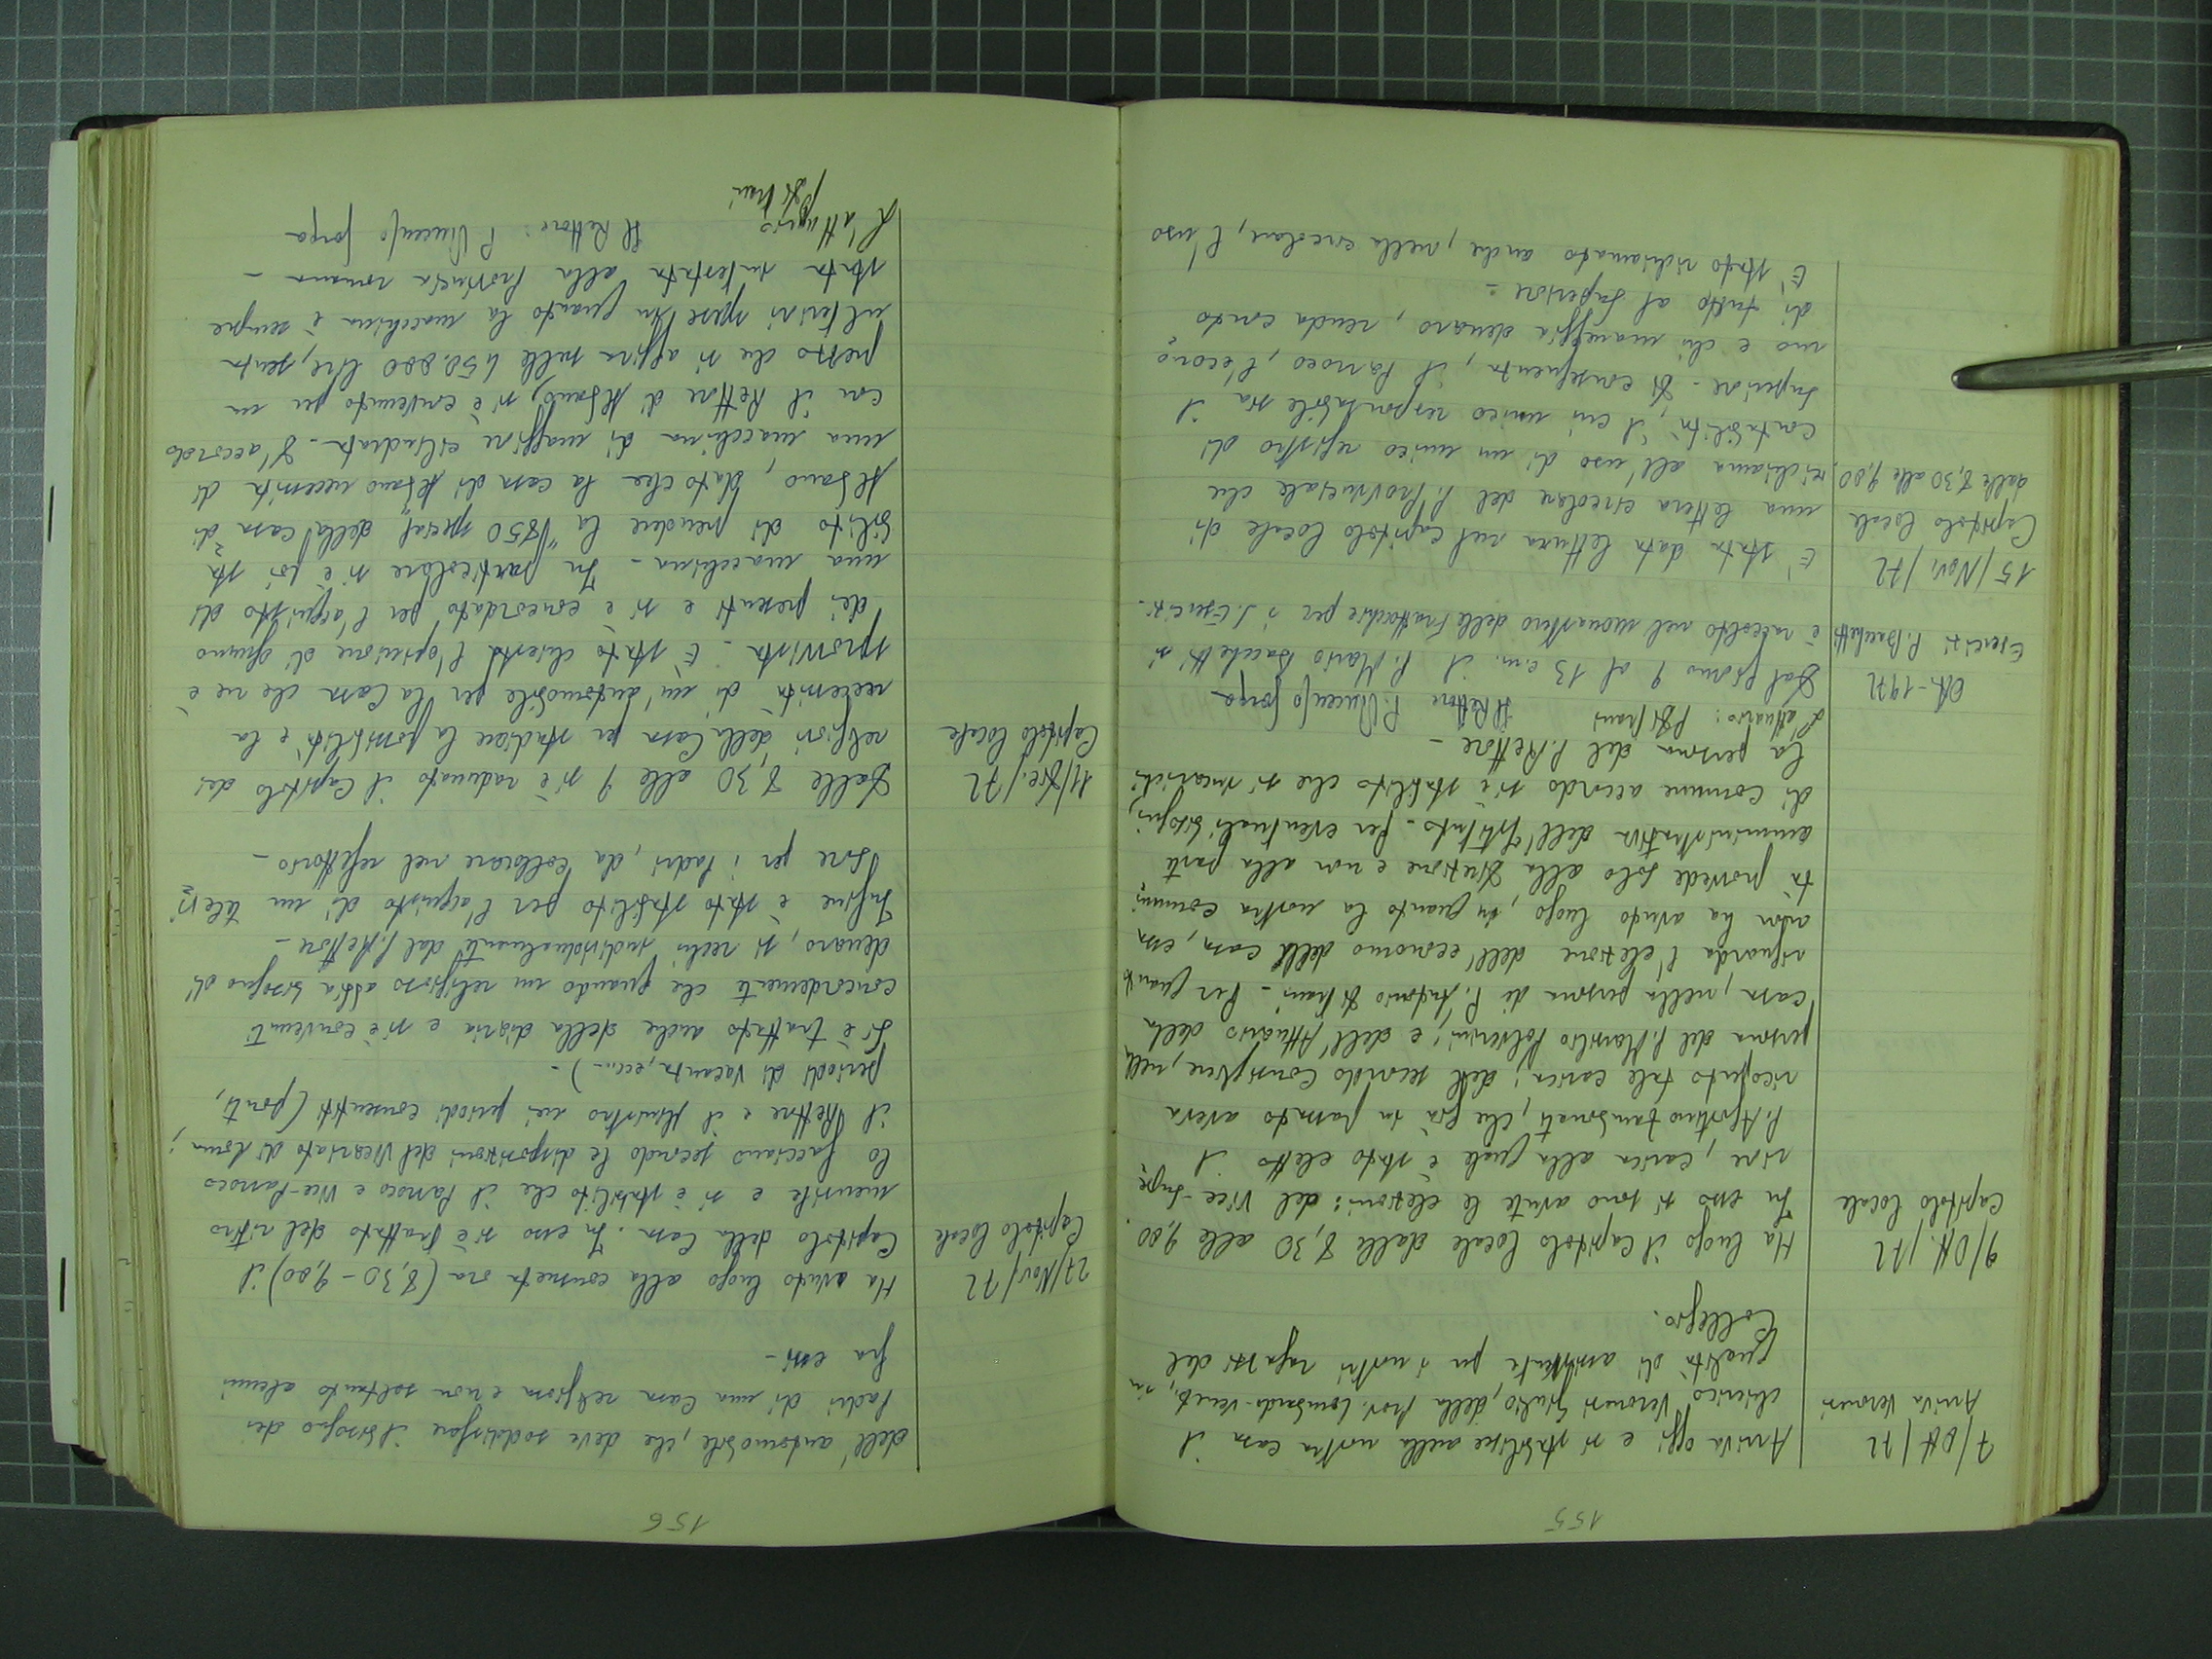 155
7/Ott/72
Arriva Veronesi
Arriva oggi e si stabilisce nella nostra casa il
chierico Veronesi Giulio, della Prov. Lombardo-Veneta, in
qualità di assistente per i nostri ragazzi del
Collegio.
9/Ott./72
Capitolo locale
Ha luogo il Capitolo locale dalle 8,30 alle 9,00.
In esso si sono avute le elezioni: del Vice-Supe
riore, carica alla quale è stato eletto il
P. Agostino, che già in passato aveva
ricoperto tale carica; del secondo Consigliere, nella
persona del P. Marsilio Polverini; e dell'Attuario della
casa, nella persona di P. Antonio - Per quanto
riguarda l'elezione dell'economo della casa, essa
non ha avuto luogo, in quanto la nostra comuni
tà provvede solo alla e non alla parte
amministrativa dell'Istituto. Per eventuali bisogni,
di comune accordo si è stabilito che si incarichi
la persona del P. Rettore -
L'attuario: Il Rettore P. Vincenzo Gorga
Ott-1972
Esercizi P. Bacchetti
Dal giorno 9 al 13 c.m. il P. Mario Bacchetti si
è raccolto nel monastero delle Frattocchie per i S. Esercizi.
15/Nov/72
Capitolo locale
dalle 8,30 alle 9,00
E' stata data lettura nel Capitolo locale di
una lettera circolare del P. Provinciale che
richiama all'uso di un unico registro di
contabilità, il cui unico responsabile sia il
Superiore. Di conseguenza, il Parroco, l'econo
mo e chi maneggia denaro, renda conto
di tutto al Superiore -
E' stato richiamato anche, nella circolare, l'uso
156
dell'automobile, che deve soddisfare il bisogno dei
Padri di una Casa religiosa e non soltanto alcuni
fra essi -
27/Nov/72
Capitolo locale
Ha avuto luogo alla consueta ora (8,30 - 9,00) il
Capitolo della Casa. In esso si è trattato del ritiro
mensile e si è stabilito che il Parroco e Vice-Parroco
lo facciano secondo le disposizioni del Vicariato di Roma;
il Rettore e il Ministro nei periodi consentiti (ponti,
periodi di vacanza, ecc...) -
Si è trattato anche della diaria e si è convenuti
concordemente che quando un religioso abbia bisogno di
denaro, si rechi individualmente dal P. Rettore -
Infine è stato stabilito per l'acquisto di un televi
sore per i Padri, da collocare nel refettorio -
11/Dic./72
Capitolo locale
Dalle 8,30 alle 9 si è radunato il Capitolo dei
religiosi della Casa per studiare la possibilità e la
necessità di un'automobile per la Casa che ne è
sprovvista - E' stata chiesta l'opinione di ognuno
dei presenti e si è concordato per l'acquisto di
una macchina - In particolare si è poi sta
bilito di prendere la "850 special" della casa di
Albano, dato che la casa di Albano necessita di
una macchina di maggiore cilindrata. D'accordo
con il Rettore di Albano, si è convenuto per un
prezzo che si aggira sulle 450.000 lire, senza
ulteriori spese in quanto la macchina è sempre
stata intestata alla Provincia romana -
L'attuario Il Rettore: P. Vincenzo Gorga